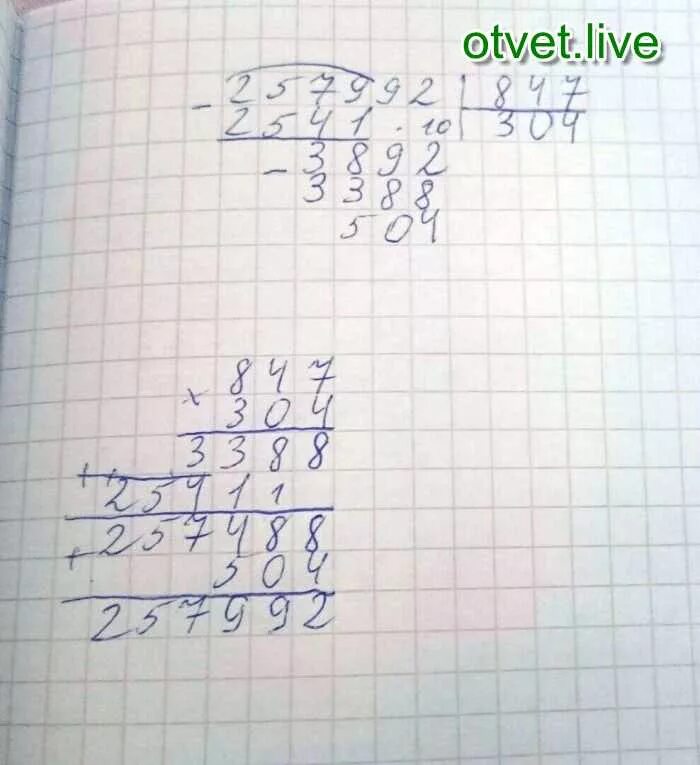 otvet.live
- 257992 | 847
2541 . 10 | 304
- 3892
3388
504
847
x 304
3388
+ + 25411
257488
+ 504
257992